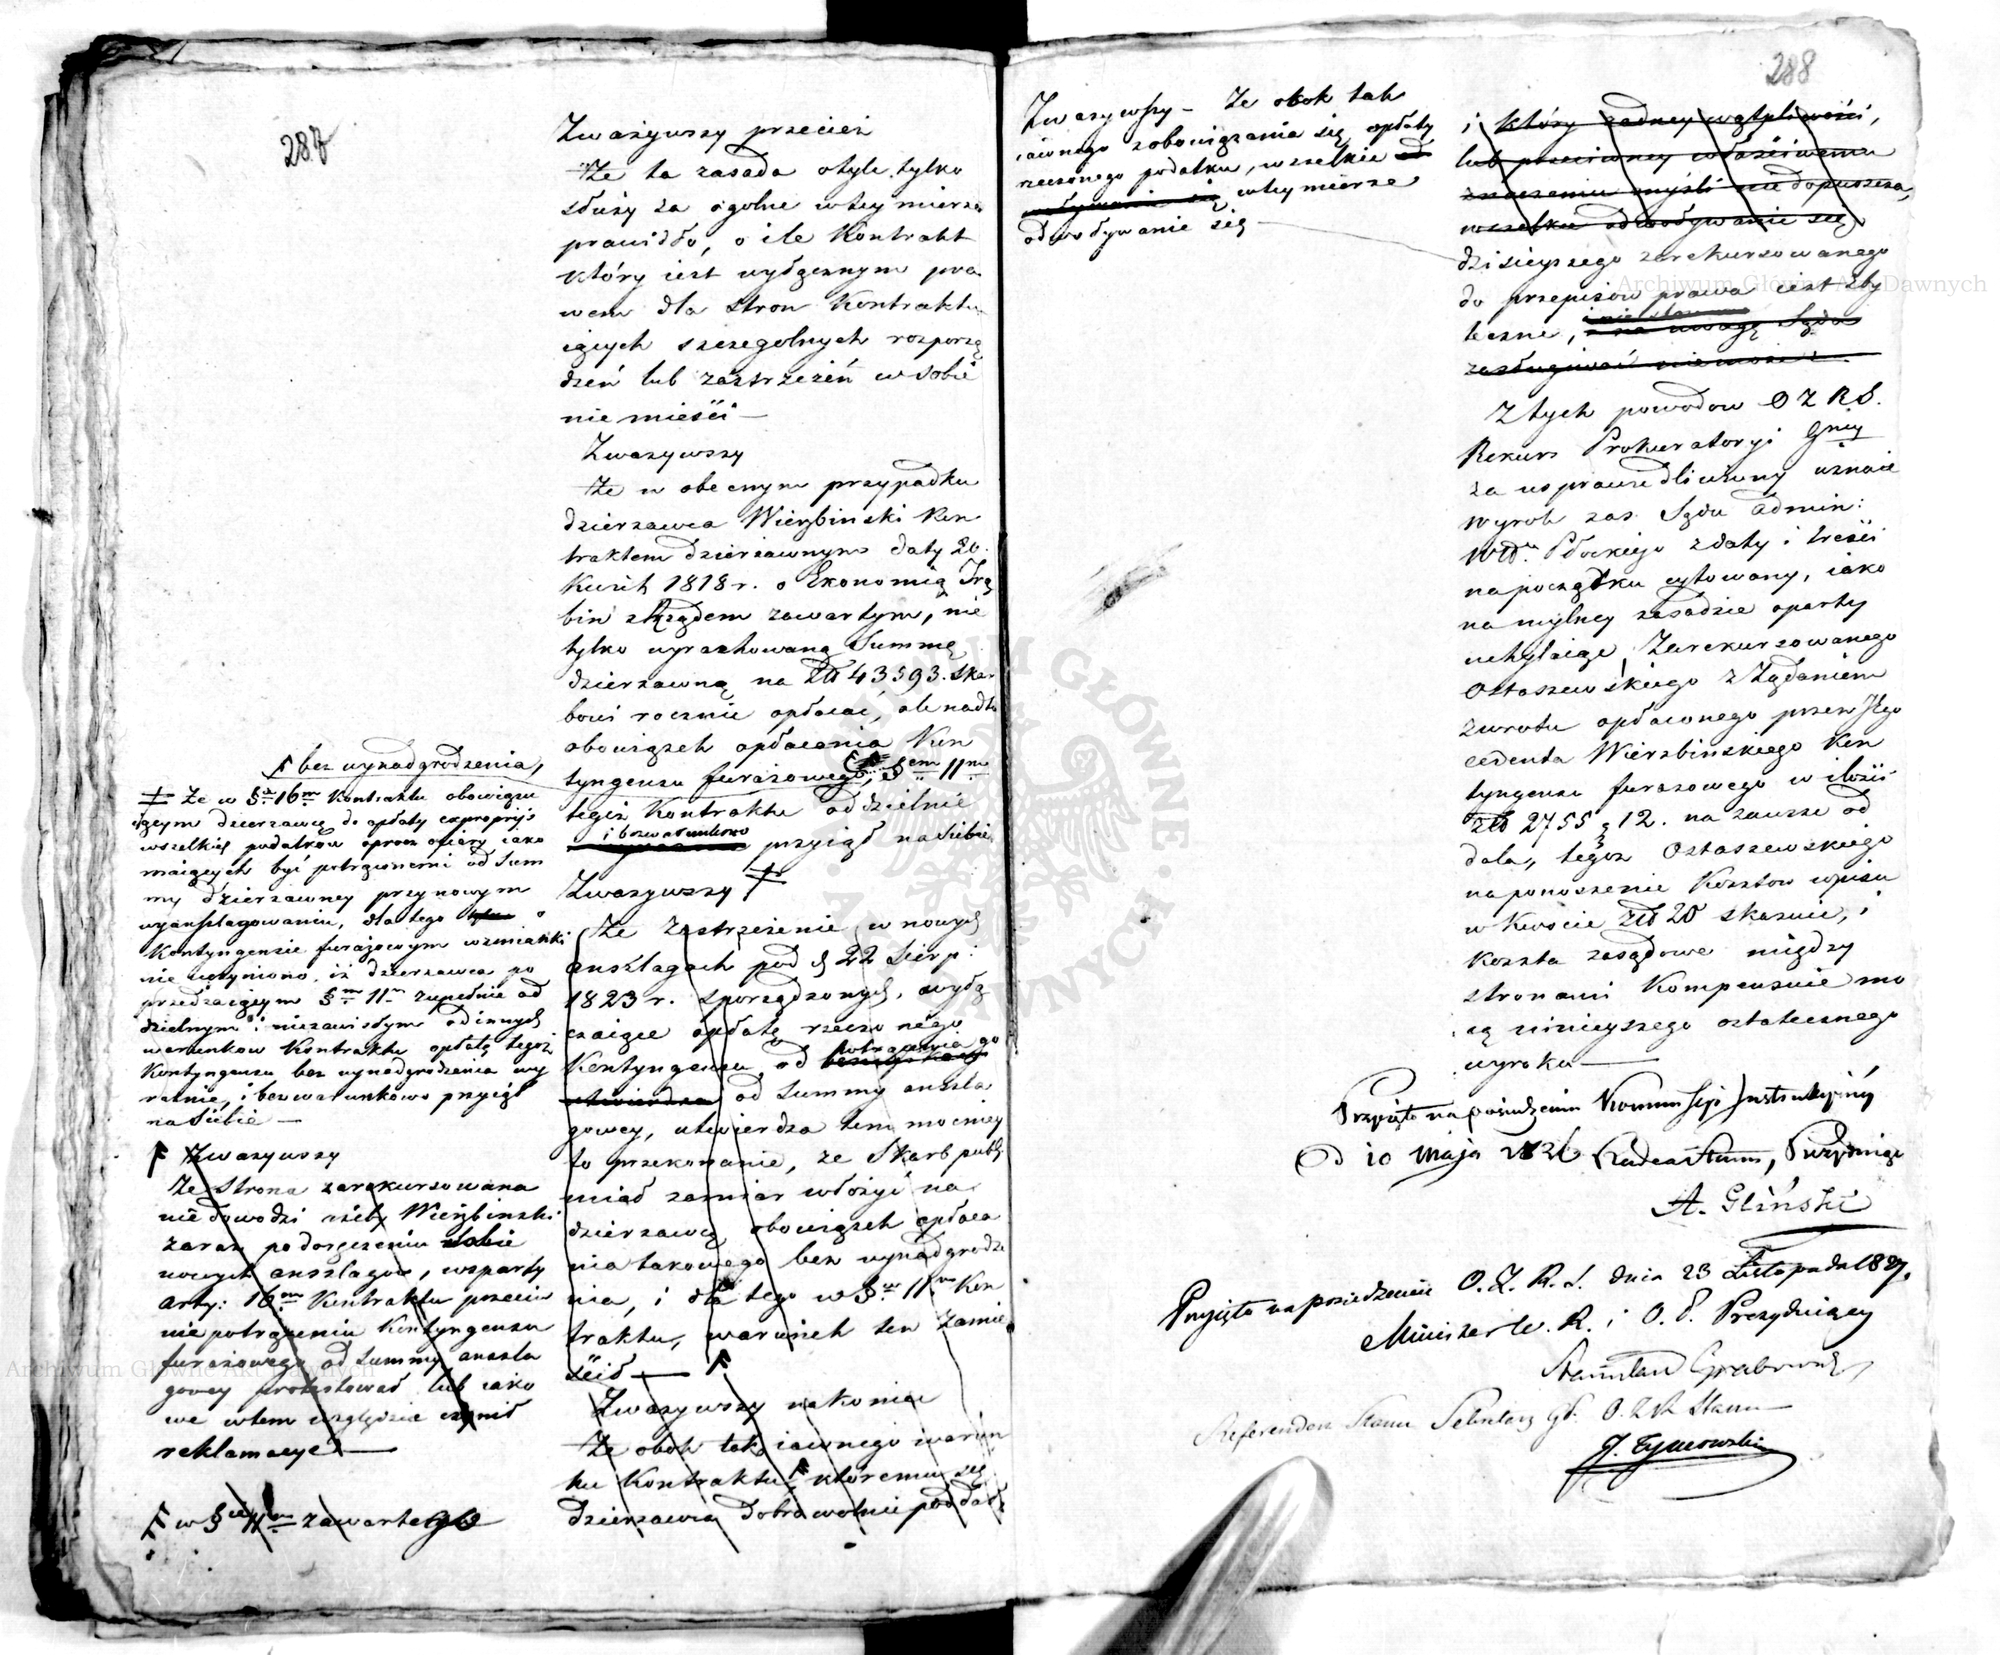 287
Zważywszy przecież
Że ta zasada otyle tylko
służy za ogolne w tey mierze
prawidło, o ile Kontrakt
który iest wyłącznym pra
wem dla stron Kontraktu
iących szczegolnych rozporzą
dzeń lub zastrzeżeń w sobie
nie mieści —
Zważywszy
Że w obecnym przypadku
dzierzawca Wierzbinski Kon
traktem dzierzawnym daty 20.
Kwiet 1818 r. o Ekonomią Trą
bin z Rządem zawartym, nie
tylko wyrachowaną Summę
dzierzawną na Złł 43593. Skar
bowi rocznie opłacać, ale nadto
obowiązek opłacenia Kon
tyngensu furażowego, §em 11m
tegoż Kontraktu oddzielnie
i bezwarunkowo
przyiął na siebie
Zważywszy ‡
Że Zastrzeżenie w nowych
ansztagach pod d 22 Sierp:
1823 r. sporządzonych, wyłą
czaiące opłatę rzeczonego
Kontyngensu, od potrącenia go
od Summy anszla
gowey, utwierdza tem mocniey
to przekonanie, ze Skarb publ
miał zamiar włożyć na
dzierzawcę obowiązek opłaca
nia takowego bez wynadgrodze
nia, i dla tego w §ie 11m Kon
traktu, warunek ten zamie
ścił —
Zważywszy nakoniec
Że obok tak iawnego warun
ku Kontraktu, któremu się
dzierzawca dobrowolnie poddał
bez wynadgrodzenia,
‡ Że w §ie 16m Kontraktu obowiązu
iącym dzierzawcę do opłaty expropriis
wszelkich podatków oprocz ofiary iako
maiących być potrąconemi od Sum
my dzierzawney przy nowym
wyanszlagowaniu, dla tego o
Kontyngensie furażowym wzmianki
nie uczyniono, iż dzierzawca po
przedzaiącym §em 11m zupełnie od
dzielnym i niezawisłym od innych
warunkow Kontraktu opłatę tegoż
Kontyngensu bez wynadgrodzenia wy
raźnie, i bezwarunkowo przyiął
na siebie —
Zważywszy
Że Strona zarekursowana
nie dowodzi ażeby Wierzbinski
zaraz po doręczeniu sobie
nowych anszlagow, wsparty
arty: 16m Kontraktu przeciw
nie potrąceniu Kontyngensu
furażowego od Summy anszla
gowey protestował lub iako
we w tem względzie czynił
reklamacye —
w §ie 11m zawartego
288
Zważywszy — Że obok tak
iawnego zobowiązania się opłaty
rzeczonego podatku, wszelkie od
wtey mierze
odwoływanie się
i który żadney wątpliwości,
lub przeciwney właściwemu
znaczeniu myśli nie dopuszcza,
wszelkie odwoływanie się
dzisieyszego zarekursowanego
do przepisów prawa iest zby
teczne, i na uwagę Sądu
zasługiwać nie może.
Z tych powodow O Z R S.
Rekurs Prokuratoryi Gney
za usprawiedliwiony uznaie
wyrok zaś Sądu admin:
Wdz. Płockiego z daty i treści
na początku cytowany, iako
na mylney zasadzie oparty
uchylaiąc, Zarekursowanego
Ostaszewskiego z Żądaniem
zwrotu opłaconego przez Jego
cedenta Wierzbinskiego Kon
tyngensu furazowego w ilości
złł 2755 g 12. na zawsze od
dala, tegoż Ostaszewskiego
na ponoszenie Kosztow wpisu
w kwocie złł 20 skazuie, i
Koszta zasądowe między
stronami Kompensuie mo
cą ninieyszego ostatecznego
wyroku —
Przyięto na posiedzeniu Kommissyi Instrukcyiney
D 10 Maja 1826 Radca Stanu, Prezyduiący
A. Gliński
Przyięto na posiedzeniu O. Z. R. S. dnia 23 Listopada 1827.
Minister W. R. i O. P. Prezyduiący
Stanisław Grabowski
Referendarz Stanu Sekretarz Gł. O. Z R Stanu
J. Tymowski
Archiwum Główne Akt Dawnych
Archiwum Główne Akt Dawnych
ARCHIWUM GŁÓWNE AKT DAWNYCH